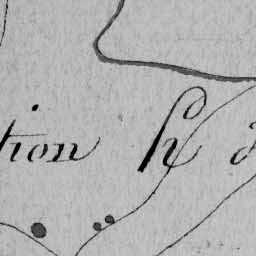 tion h